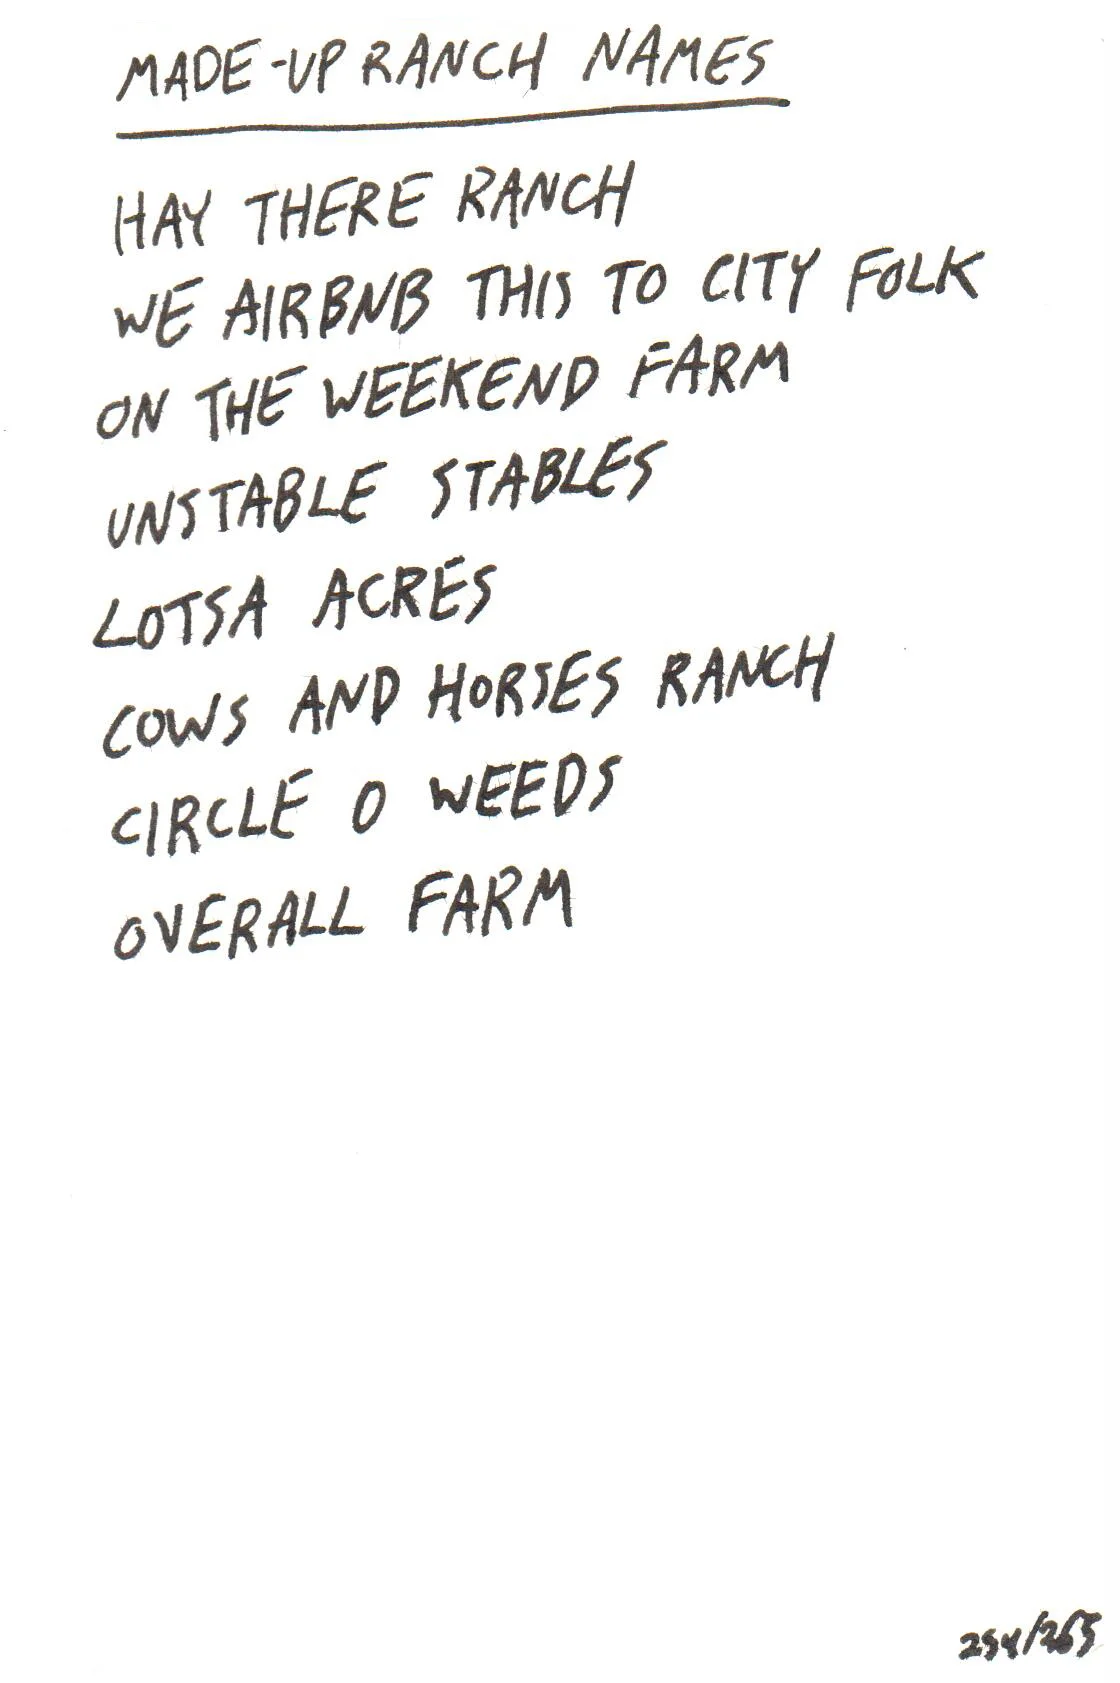 MADE-UP RANCH NAMES
HAY THERE RANCH
WE AIRBNB THIS TO CITY FOLK
ON THE WEEKEND FARM
UNSTABLE STABLES
LOTSA ACRES
COWS AND HORSES RANCH
CIRCLE O WEEDS
OVERALL FARM
254/265